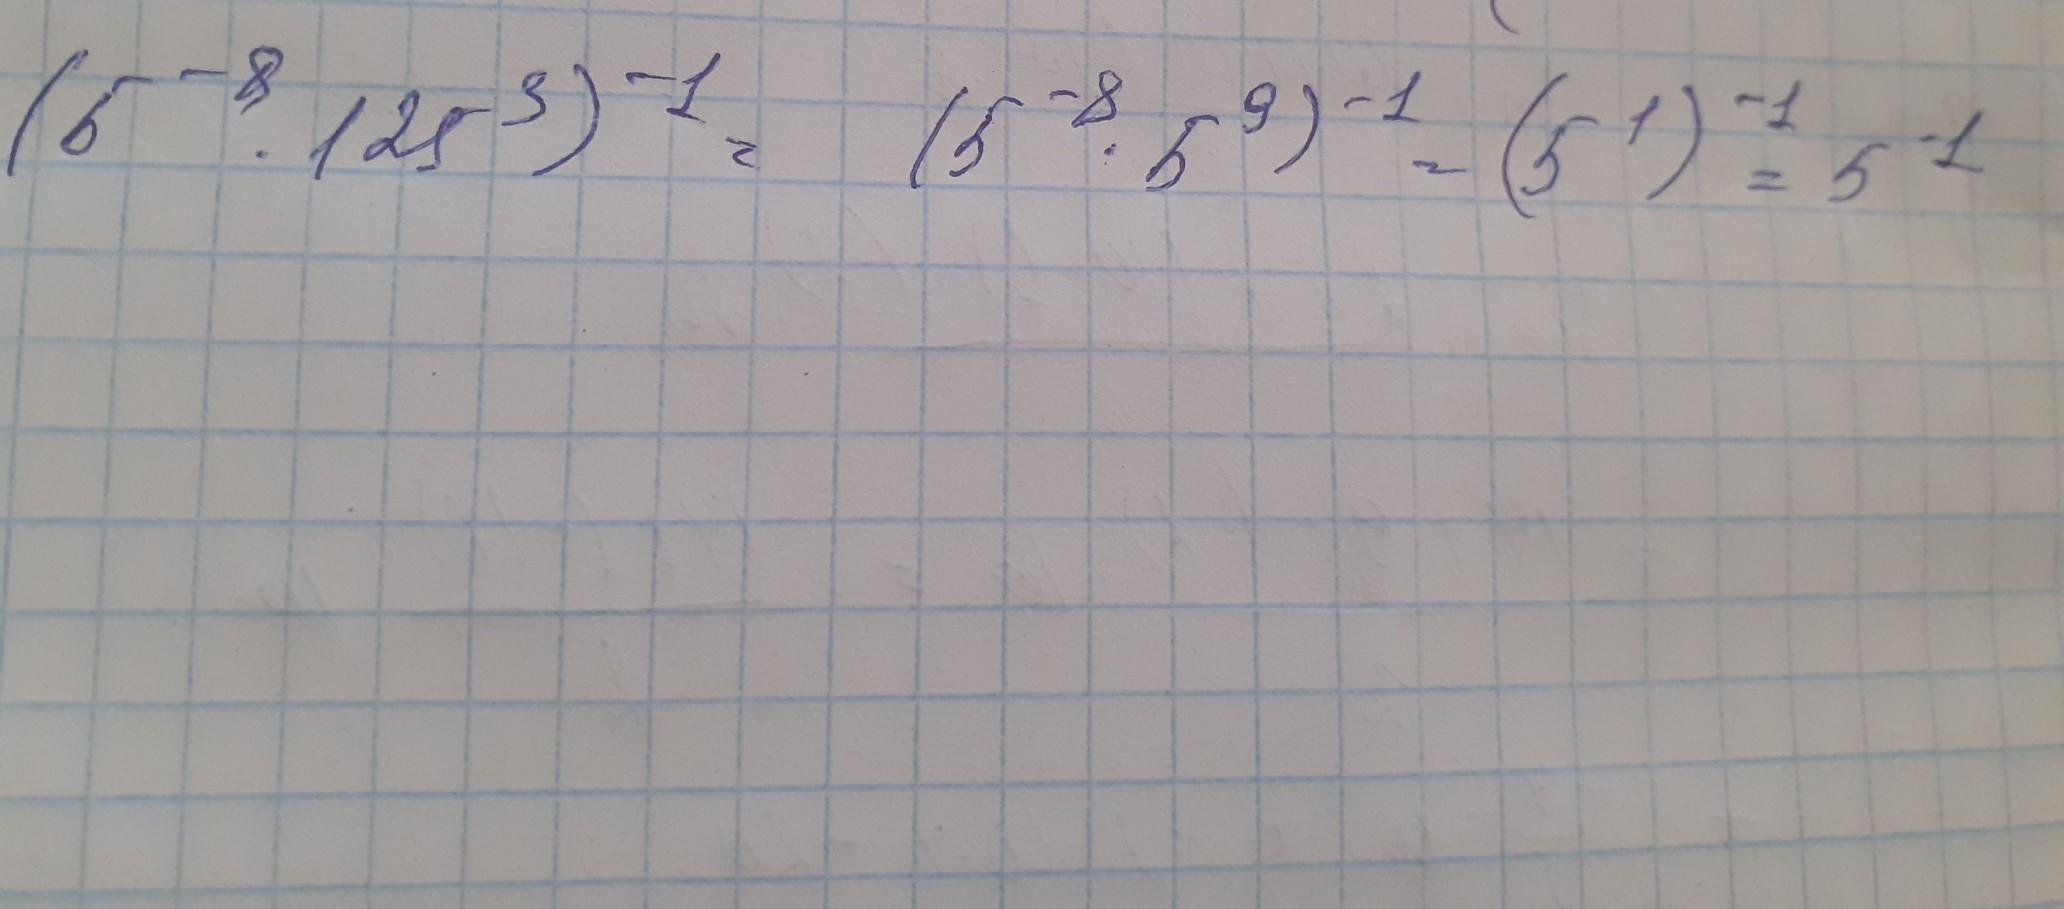 (5⁻⁸ · 125³)⁻¹ = (5⁻⁸ · 5⁹)⁻¹ = (5¹)⁻¹ = 5⁻¹